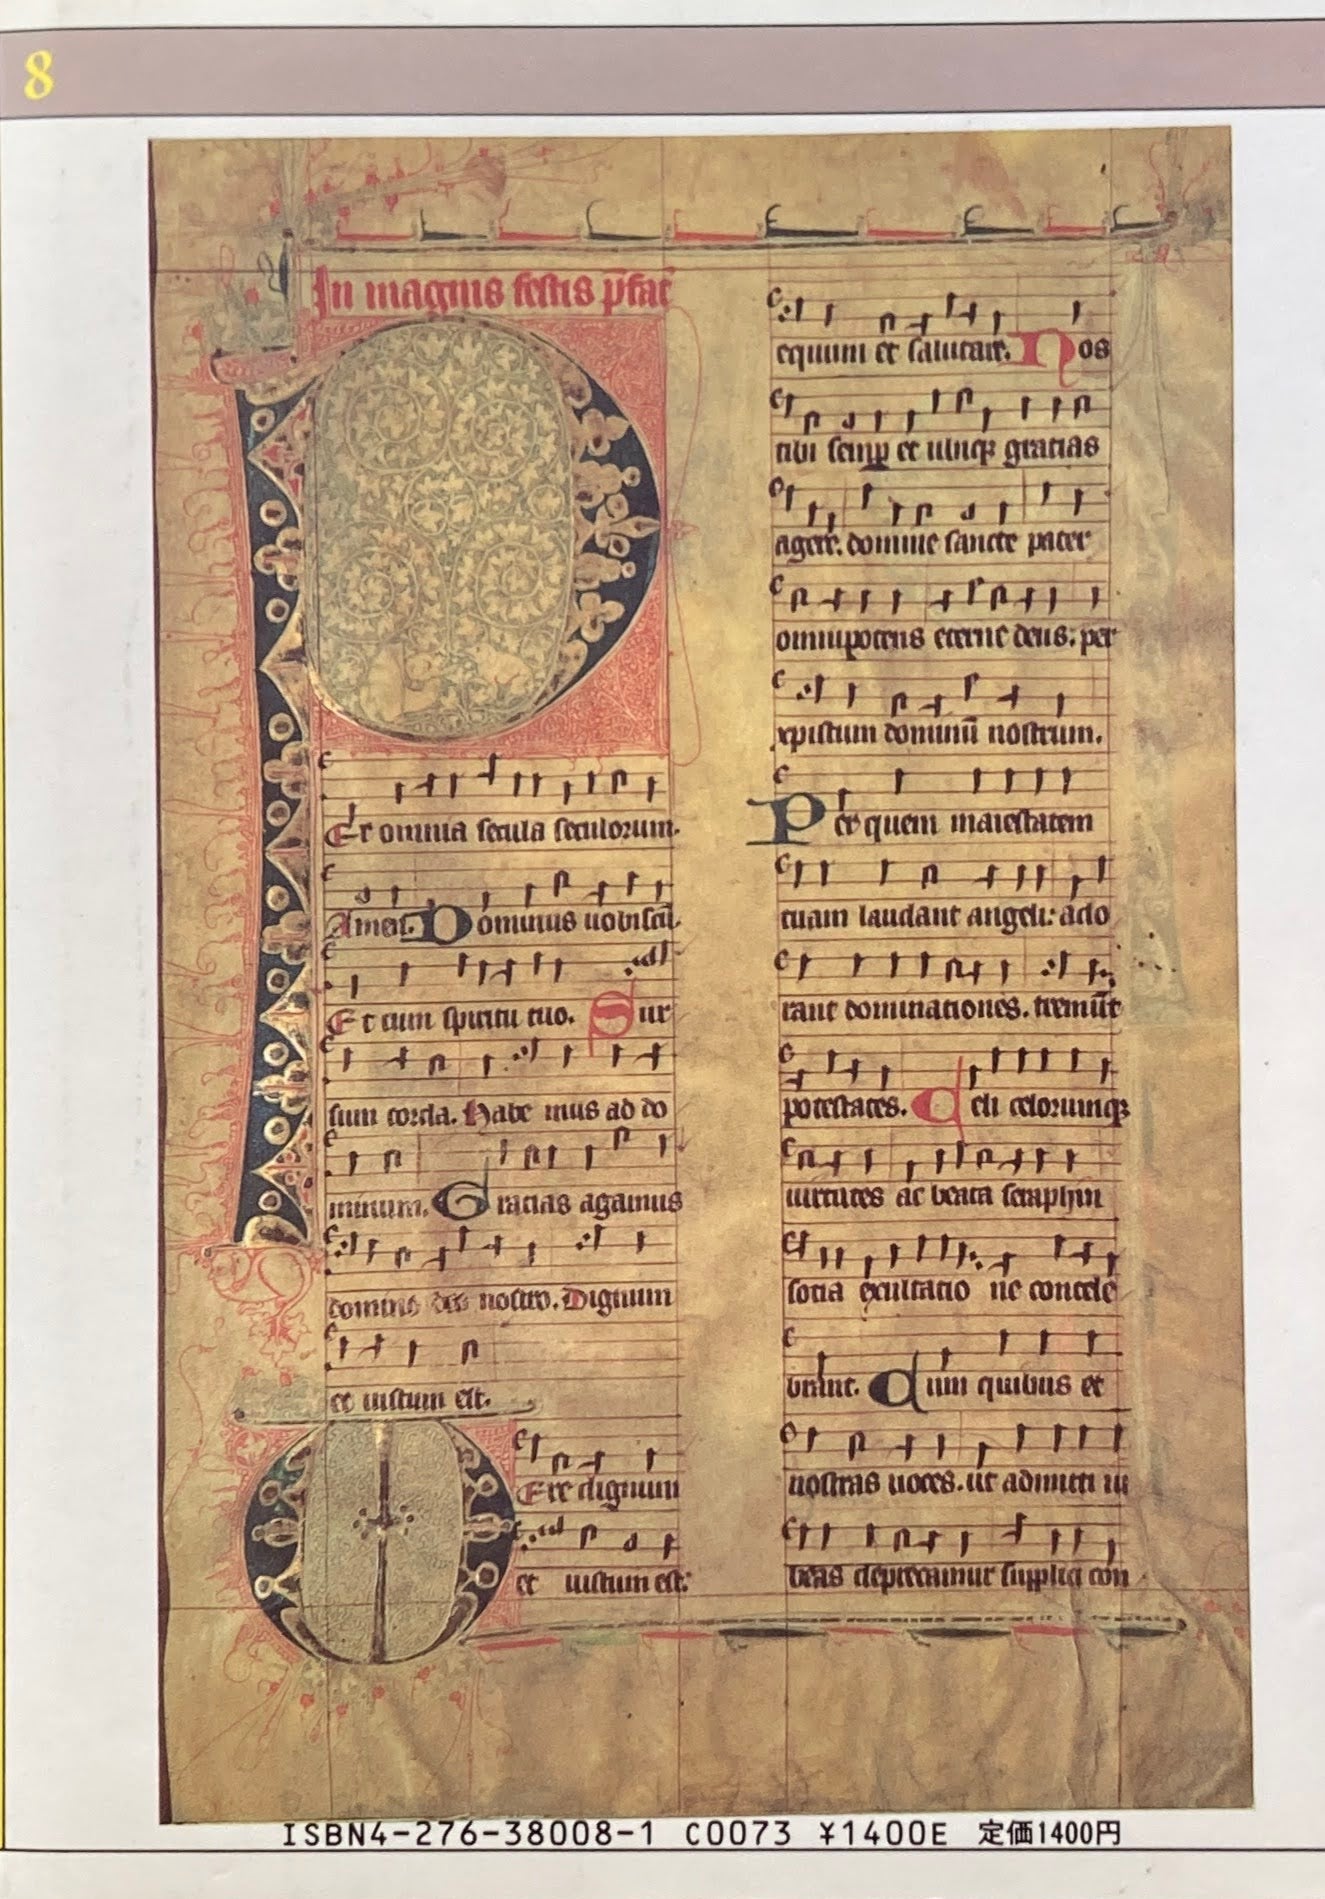 8
In magnis festis p̄fat̄
P
Er omnia secula seculorum.
Amen. Dominus uobiscū.
Et cum spiritu tuo. Sur
sum corda. Habe mus ad do
minum. Gracias agamus
domino deo nostro. Dignum
et iustum est.
Ere dignum
et iustum est.
equum et salutare. Nos
tibi semp et ubiqꝫ gratias
agere. domine sancte pater
omnipotens eterne deus. per
xpistum dominū nostrum.
Per quem maiestatem
tuam laudant angeli. ado
rant dominationes. tremūt
potestates. Celi celorumqꝫ
uirtutes ac beata seraphin
socia exultatio ne concele
brant. Cum quibus et
nostras uoces. ut admitti iu
beas deprecamur supplici con
ISBN4-276-38008-1 C0073 ¥1400E 定価1400円